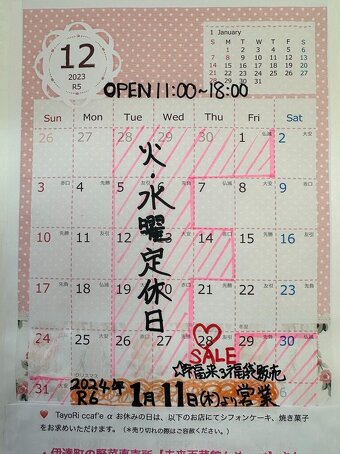 12
2023
R5
1 January
S M T W T F S
1 2 3 4 5 6
7 8 9 10 11 12 13
14 15 16 17 18 19 20
21 22 23 24 25 26 27
28 29 30 31
OPEN 11:00~18:00
Sun Mon Tue Wed Thu Fri Sat
26 27 28 29 30 1 仏滅 2 大安
3 赤口 4 先勝 5 6 7 仏滅 8 大安 9 赤口
10 先勝 11 友引 12 13 14 15 16
17 先負 18 仏滅 19 20 21 22 23
24 25 26 27 28 29 30
31
火・水曜定休日
SALE
☆幸福来る福袋販売
2024年
R6
1月11日(木)より営業
♥ TayoRi ccaf'e α お休みの日は、以下のお店にてシフォンケーキ、焼き菓子
をお求めいただけます。(※売り切れの際はご容赦ください。)